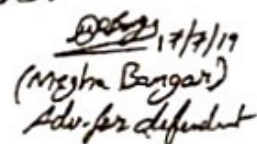 17/7/19
(Megha Bangar)
Adv. for defendent